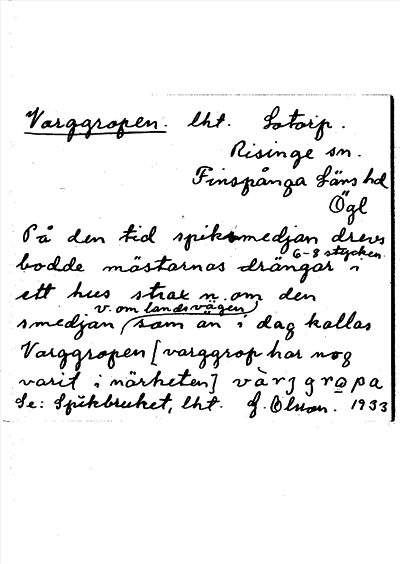 Varggropen. lht. Sotorp.
Risinge sn.
Finspånga Läns hd
Ögl
På den tid spiksmedjan drevs
6-8 stycken
bodde mästarnas drängar i
ett hus strax n. om den
v. om landsvägen
smedjan (som än i dag kallas
Varggropen [varggrop har nog
varit i närheten] vàrjgropa
Se: Spikbruket, lht. G. Olson. 1933